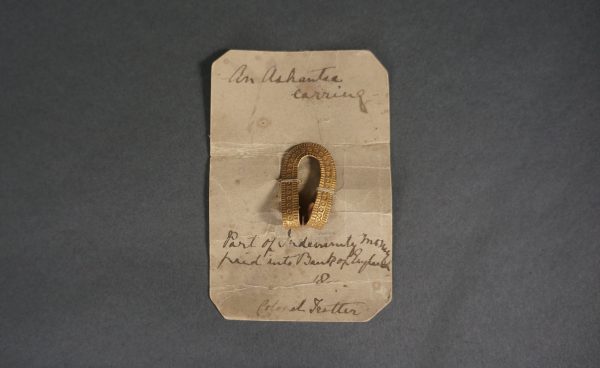 An Ashantee
earring
Part of Indemnity Money
paid into Bank of England
18
Colonel Trotter